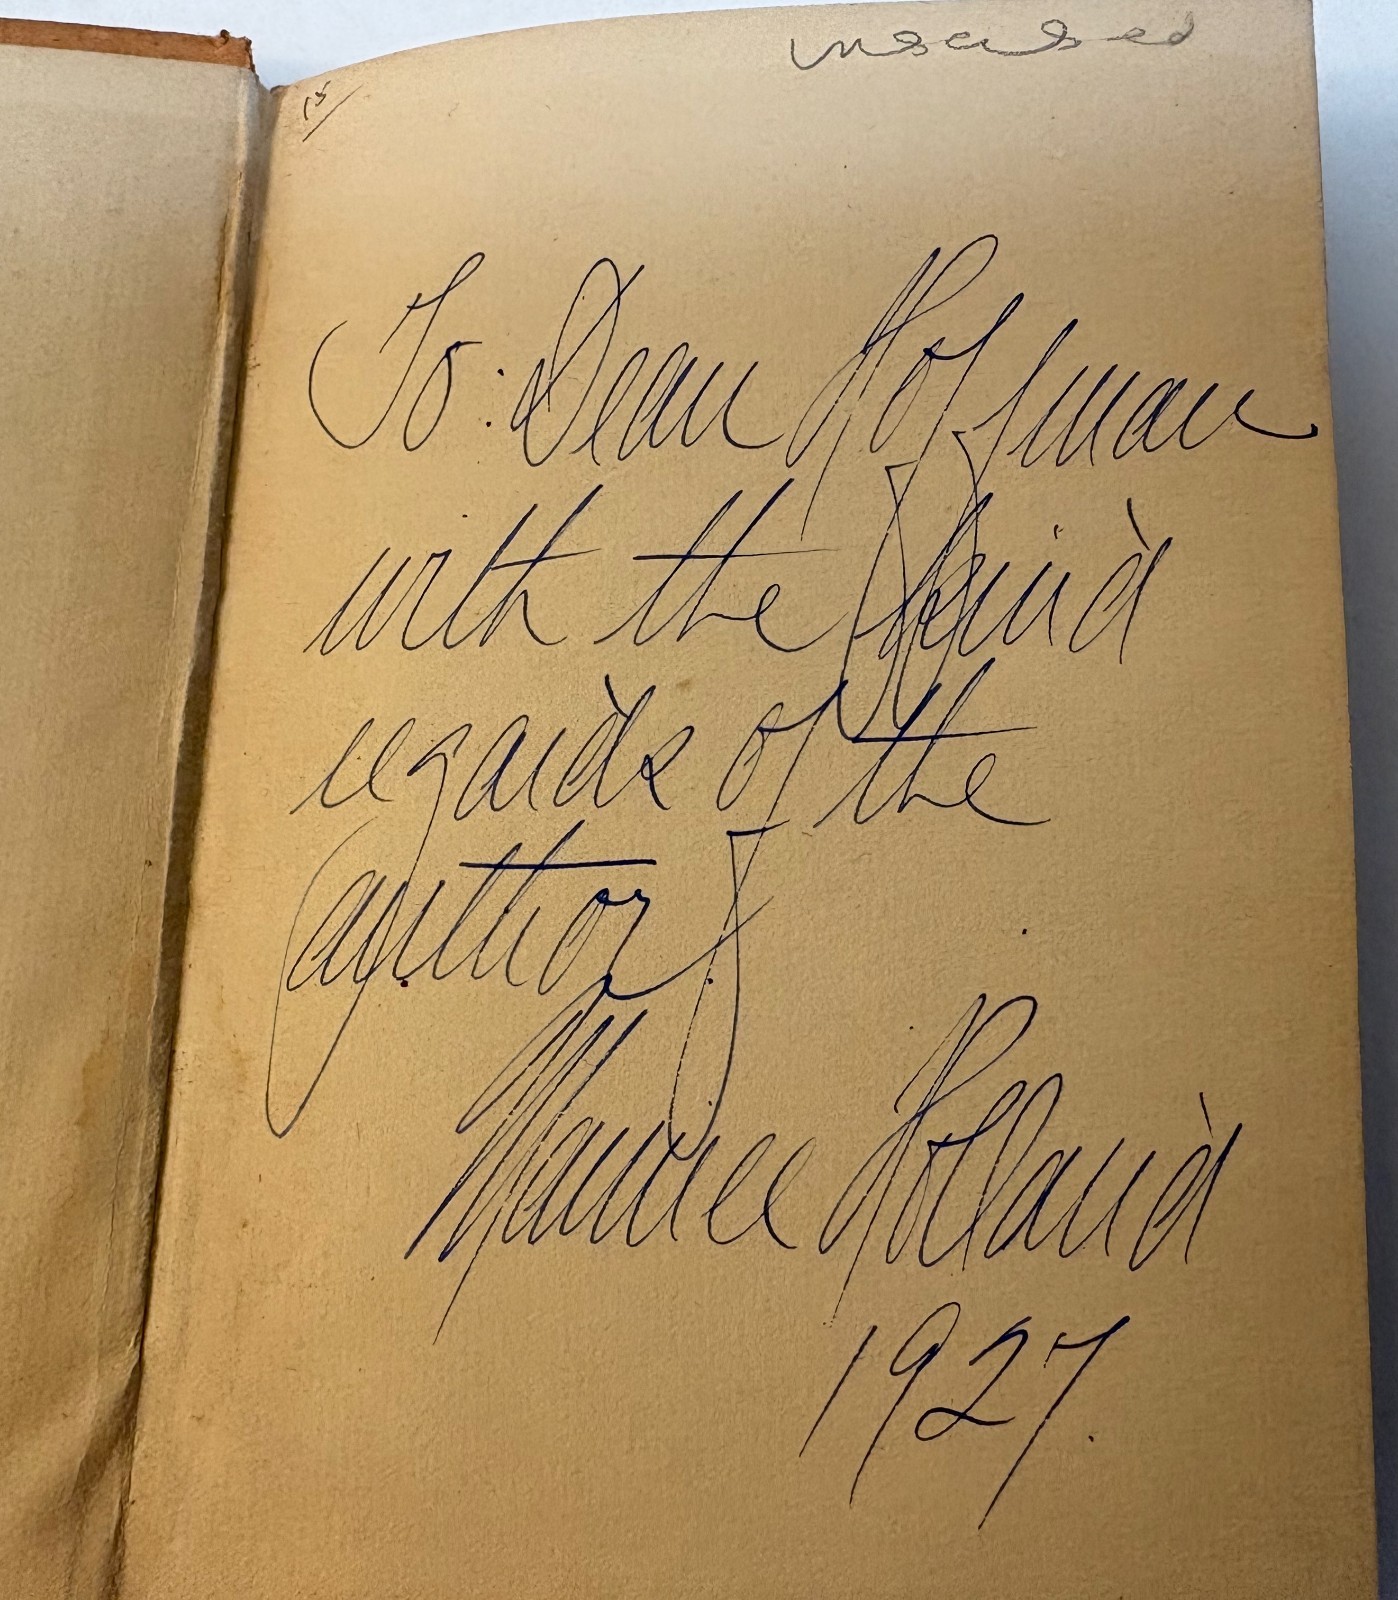 inscribed
15/
To: Dean Hoffman
with the kind
regards of the
author.
Maurice Holland
1927.